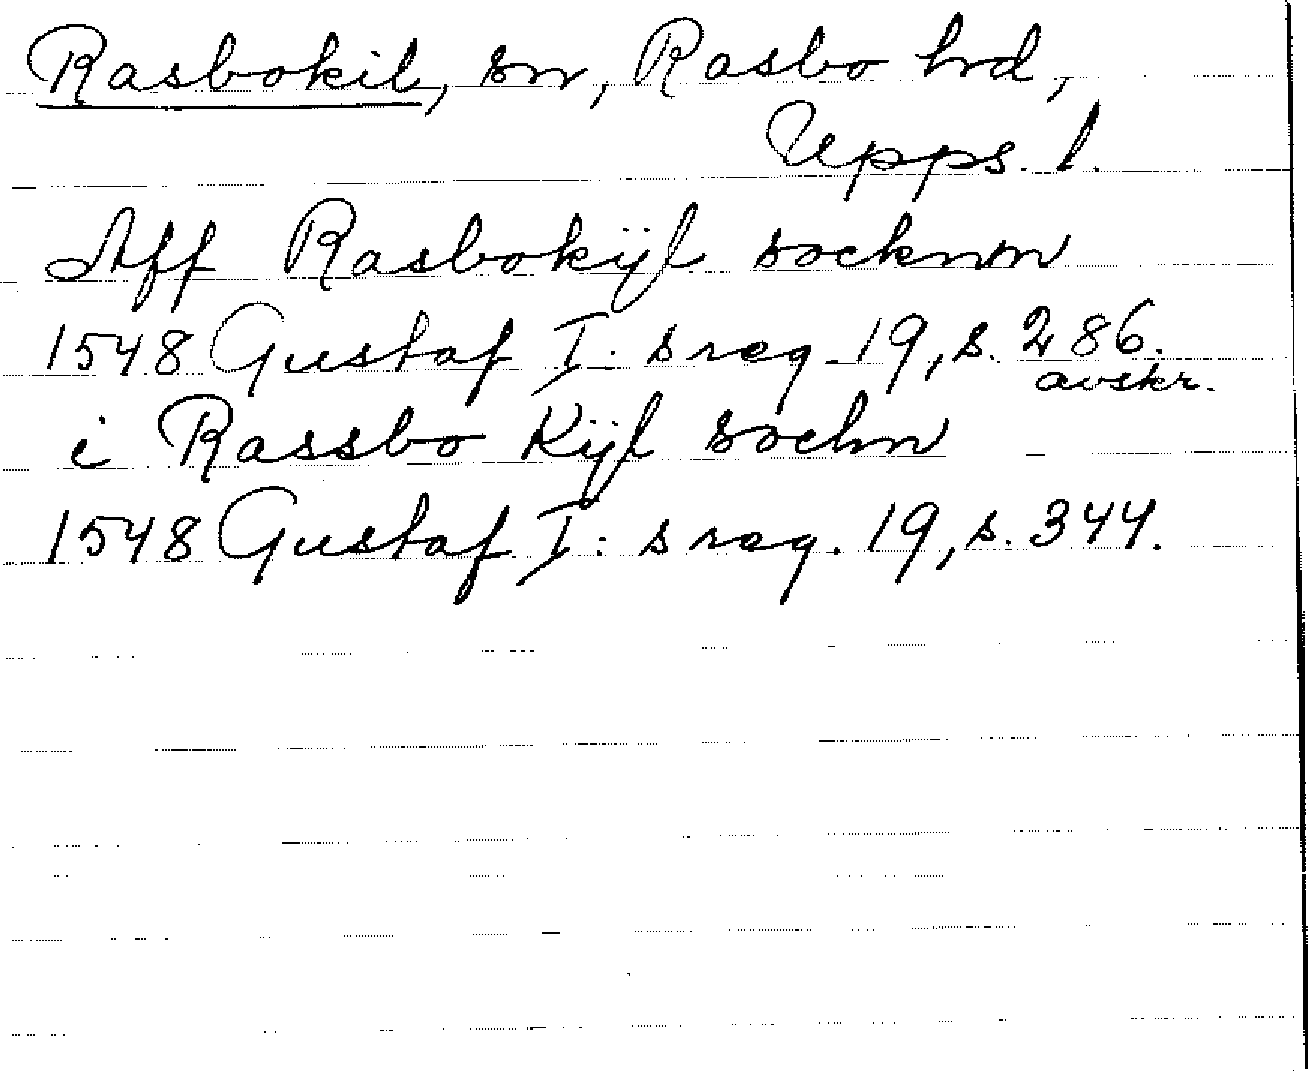 Rasbokil, sn, Rasbo hd,
Upps. l.
Aff Rasbokÿl socknnn
1548 Gustaf I:s reg. 19, s. 286.
avskr.
i Rassbo Kÿl sochn
1548 Gustaf I:s reg. 19, s. 344.